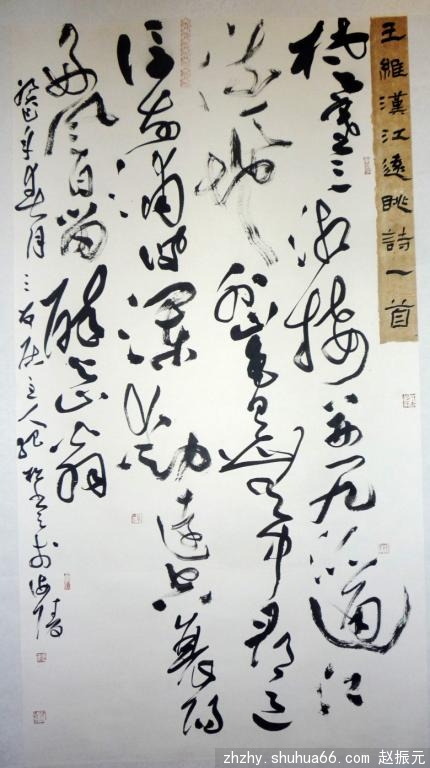 王維漢江遠眺詩一首
楚塞三湘接荆門九派通江
流天地外山色有無中郡邑
浮前浦波瀾動遠空襄陽
好風日留醉與山翁
癸巳年春月三石居主人
zhzhy.shuhua66.com 赵振元